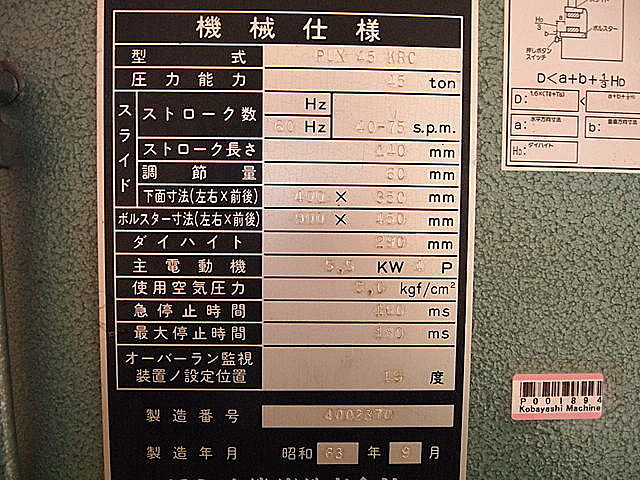 機械仕様
型式 PUX 45 KRC
圧力能力 45 ton
スライド
ストローク数 Hz
60 Hz 40-75 s.p.m.
ストローク長さ 140 mm
調節量 60 mm
下面寸法(左右×前後) 400 × 350 mm
ボルスター寸法(左右×前後) 900 × 450 mm
ダイハイト 290 mm
主電動機 5.5 KW 4 P
使用空気圧力 5.0 kgf/cm²
急停止時間 160 ms
最大停止時間 180 ms
オーバーラン監視
装置ノ設定位置 15 度
製造番号 4002370
製造年月 昭和 63 年 9 月
スライド
ボルスター
押しボタン
スイッチ
D<a+b+⅓HD
D: 1.6×(Tℓ+Ts) < a+b+⅓HD
a: 水平方向寸法 b: 垂直方向寸法
HD: ダイハイト
P001894
Kobayashi Machine